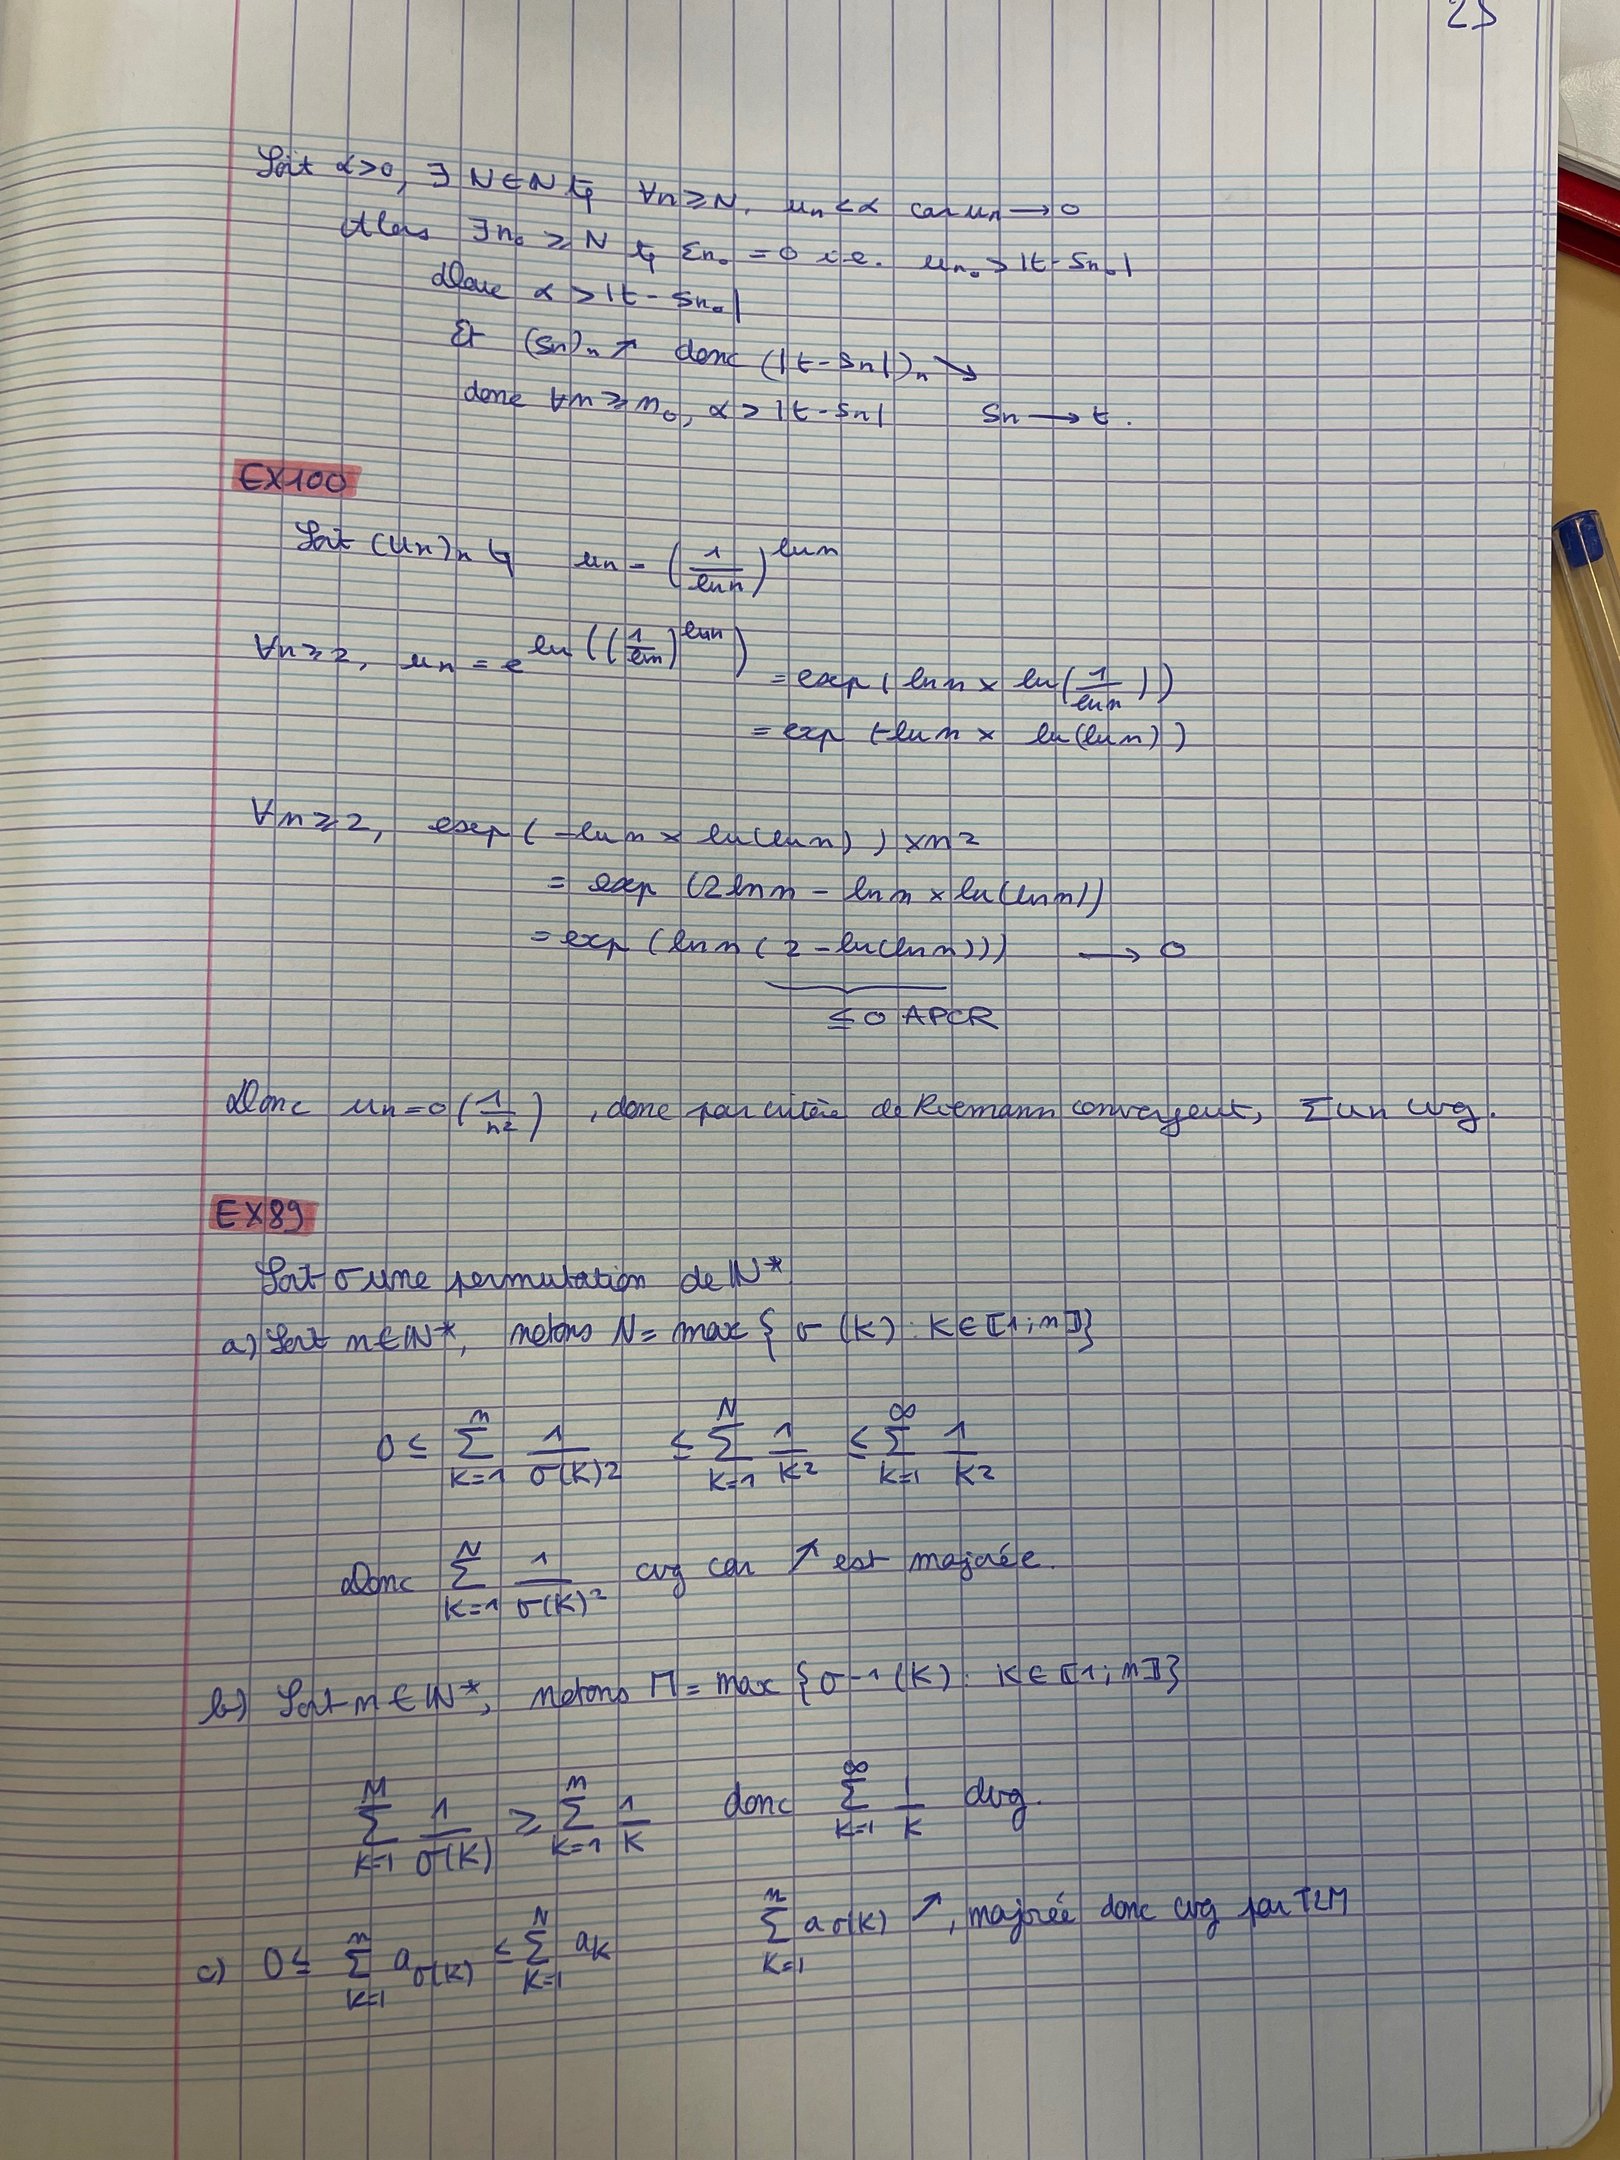 25
Soit α>0, ∃ N∈N tq ∀n≥N, un<α car un → 0
Alors ∃n₀ ≥ N tq εn₀ = 0 i.e. un₀ > |t-Sn₀|
Donc α > |t - Sn₀|
Et (Sn)n ↗ donc (|t-Sn|)n ↘
donc ∀n ≥ n₀, α > |t-Sn| Sn → t.
EX100
Soit (un)n tq un = (1/ln n)^ln n
∀n≥2, un = e^ln((1/ln n)^ln n) = exp(ln n × ln(1/ln n))
= exp(-ln n × ln(ln n))
∀n≥2, exp(-ln n × ln(ln n)) × n²
= exp(2ln n - ln n × ln(ln n))
= exp(ln n (2-ln(ln n))) → 0
≤ 0 APCR
Donc un=o(1/n²), donc par critère de Riemann convergent, Σun cvg.
EX89
Soit σ une permutation de N*
a) Soit n∈N*, notons N = max{σ(k) : k∈⟦1;n⟧}
0 ≤ Σ_{k=1}^{n} 1/σ(k)² ≤ Σ_{k=1}^{N} 1/k² ≤ Σ_{k=1}^{∞} 1/k²
Donc Σ_{k=1}^{N} 1/σ(k)² cvg car ↗ est majorée.
b) Soit n∈N*, notons M = max{σ-1(k) : k∈⟦1;n⟧}
Σ_{k=1}^{M} 1/σ(k) ≥ Σ_{k=1}^{n} 1/k donc Σ_{k=1}^{∞} 1/k dvg.
c) 0 ≤ Σ_{k=1}^{n} aσ(k) ≤ Σ_{k=1}^{N} ak Σ_{k=1}^{n} aσ(k) ↗, majorée donc cvg par TLM